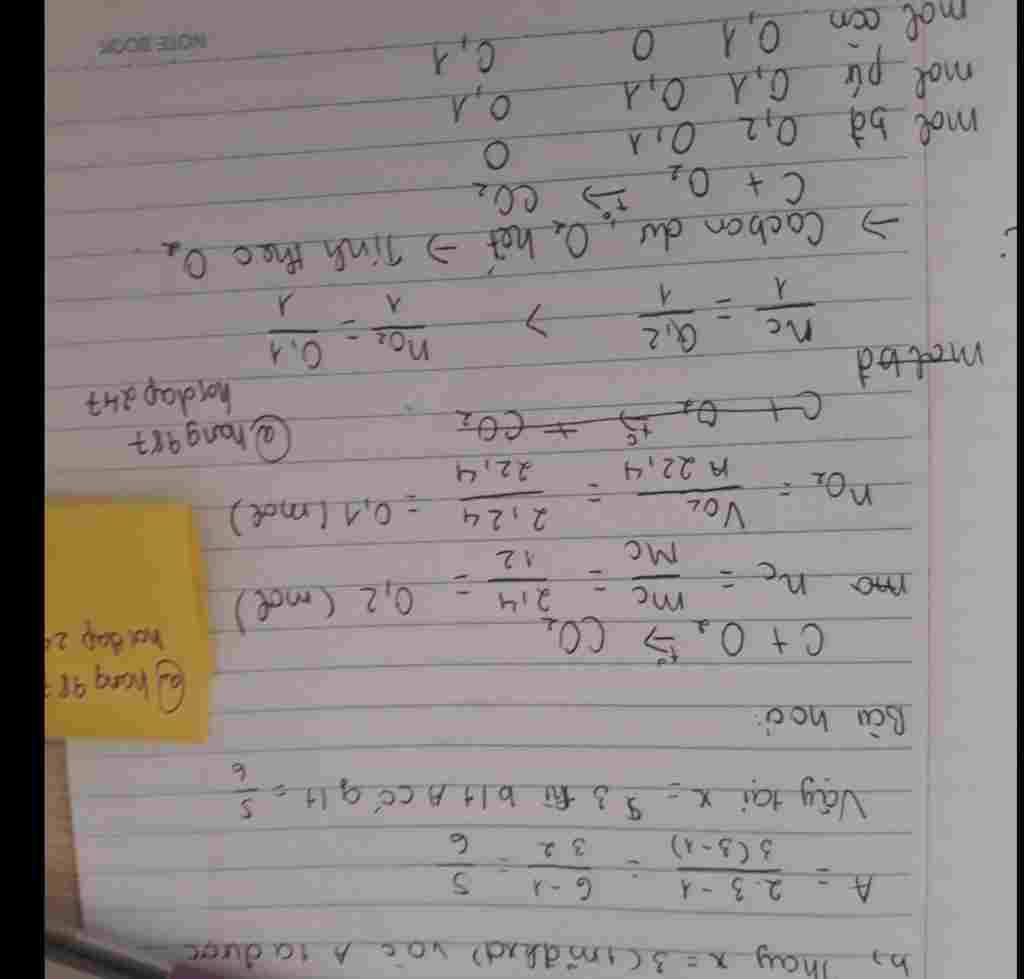 b, Thay x = 3 (tmđkxđ) vào A ta được
A = 2.3-1 / 3(3-1) = 6-1 / 3.2 = 5/6
Vậy tại x = 3 thì b/t A có g/t = 5/6
Bài hoá:
C + O₂ t°→ CO₂
n_C = m_C / M_C = 2,4 / 12 = 0,2 (mol)
n_O₂ = V_O₂ / 22,4 = 2,24 / 22,4 = 0,1 (mol)
C + O₂ t°→ + CO₂
@hang987
hoidap247
mol bđ
n_C / 1 = 0,2 / 1 > n_O₂ / 1 = 0,1 / 1
→ Cacbon dư, O₂ hết → Tính theo O₂
C + O₂ t°→ CO₂
mol bđ 0,2 0,1 0
mol pứ 0,1 0,1 0,1
mol còn 0,1 0 0,1
@hang987
hoidap 24
NOTE BOOK